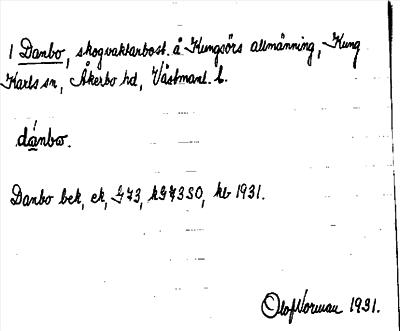 1 Danbo, skogvaktarbost. å Kungsörs allmänning, Kung
Karls sn, Åkerbo hd, Västmanl. l.
dánbω.
Danbo bek, ek, G73, kG73SO, kb 1931.
Olof Norman 1931.